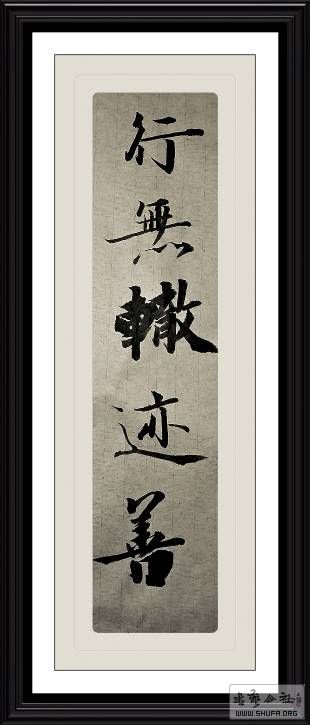 行無轍迹善
書藝公社
WWW.SHUFA.ORG